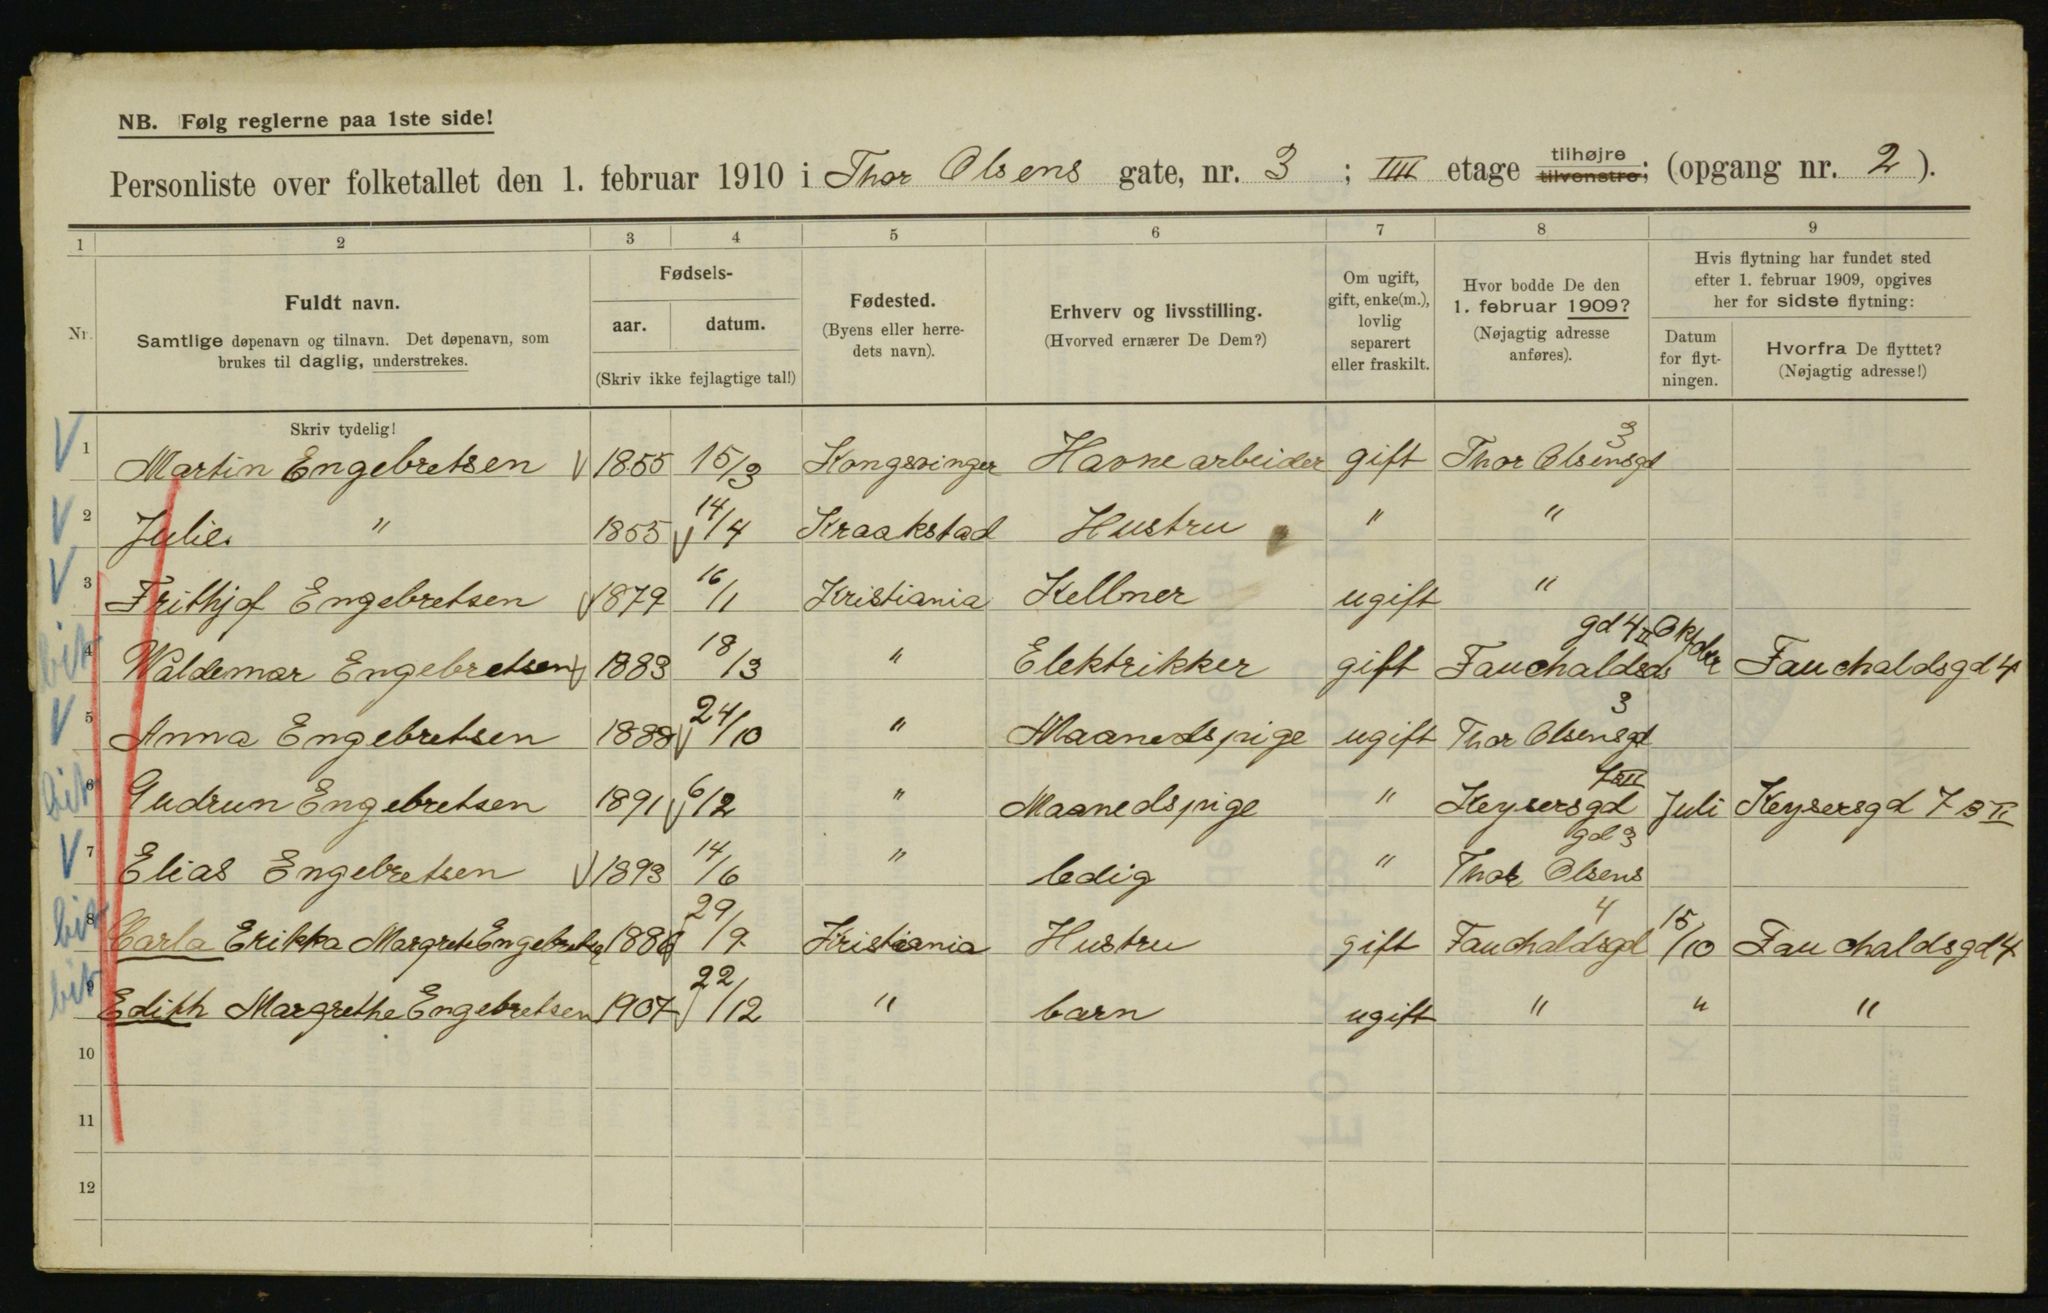 NB. Følg reglerne paa 1ste side!
Personliste over folketallet den 1. februar 1910 i Thor Olsens gate, nr. 3 ; IIII etage tilhøjre tilvenstre; (opgang nr. 2 ).
1 2 3 4 5 6 7 8 9
Nr.
Fuldt navn.
Samtlige døpenavn og tilnavn. Det døpenavn, som
brukes til daglig, understrekes.
Skriv tydelig!
Fødsels-
aar. datum.
(Skriv ikke fejlagtige tal!)
Fødested.
(Byens eller herre-
dets navn).
Erhverv og livsstilling.
(Hvorved ernærer De Dem?)
Om ugift,
gift, enke(m.),
lovlig
separert
eller fraskilt.
Hvor bodde De den
1. februar 1909?
(Nøjagtig adresse
anføres).
Hvis flytning har fundet sted
efter 1. februar 1909, opgives
her for sidste flytning:
Datum
for flyt-
ningen.
Hvorfra De flyttet?
(Nøjagtig adresse!)
V 1 Martin Engebretsen V 1855 15/3 Kongsvinger Havnearbeider gift Thor Olsensgd 3
V 2 Julie " 1855 V 14/4 Kraakstad Hustru " "
V 3 Frithjof Engebretsen V 1879 16/1 Kristiania Kellner ugift "
bit 4 Valdemar Engebretsen V 1883 18/3 " Elektrikker gift Fauchalds gd 4 II Oktober Fauchaldsgd 4
V 5 Anna Engebretsen 1888 V 24/10 " Maanedspige ugift Thor Olsensgd 3
bit 6 Gudrun Engebretsen 1891 V 6/2 " Maanedspige " Keysersgd Juli Keysersgd 7 B II
V 7 Elias Engebretsen V 1893 14/6 " ledig " Thor Olsens gd 3
bit 8 Carla Erikka Margrete Engebretsen 1886 29/9 Kristiania Hustru gift Fauchaldsgd 4 15/10 Fauchaldsgd 4
bit 9 Edith Margrethe Engebretsen 1907 V 22/12 " barn ugift " " "
10
11
12